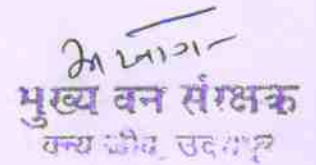 मुख्य वन संरक्षक
वन्य जीव, उदयपुर